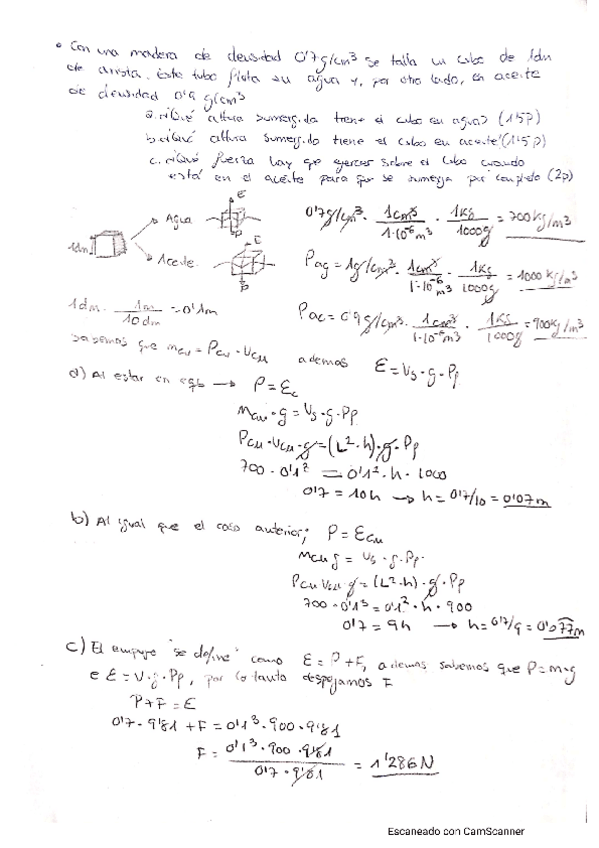 • Con una madera de densidad 0'7g/cm³ se talla un cubo de 1dm
de arista. Este tubo flota en agua y, por otro lado, en aceite
de densidad 0'9 g/cm³
a. ¿Qué altura sumergida tiene el cubo en agua? (1'5p)
b. ¿Qué altura sumergido tiene el cubo en aceite? (1'5p)
c. ¿Qué fuerza hay que ejercer sobre el cubo cuando
está en el aceite para que se sumerja por completo (2p)
1dm
Agua
Aceite
E
P
E
P
0'7g/cm³ · 1cm³/1·10⁻⁶m³ · 1Kg/1000g = 700Kg/m³
Pag = 1g/cm³ · 1cm³/1·10⁻⁶m³ · 1Kg/1000g = 1000 Kg/m³
1dm · 1m/10dm = 0'1m
Pac = 0'9g/cm³ · 1cm³/1·10⁻⁶m³ · 1KS/1000g = 900Kg/m³
sabemos que mcu = Pcu · Vcu además E = Vs · g · Pp
a) Al estar en eqb → P = Ec
mcu · g = Vs · g · Pp
Pcu · Vcu · g = (L² · h) · g · Pp
700 · 0'1² = 0'1² · h · 1000
0'7 = 10h → h = 0'7/10 = 0'07m
b) Al igual que el caso anterior; P = Ecu
mcu g = Vs · g · Pp
Pcu Vcu · g = (L² · h) · g · Pp
700 · 0'1³ = 0'1² · h · 900
0'7 = 9h → h = 0'7/9 = 0'077m
c) El empuje "se define" como E = P + F, además sabemos que P = m·g
e E = V · g · Pp, por lo tanto despejamos F
P + F = E
0'7 · 9'81 + F = 0'1³ · 900 · 9'81
F = 0'1³ · 900 · 9'81/0'7 · 9'81 = 1'286 N
Escaneado con CamScanner